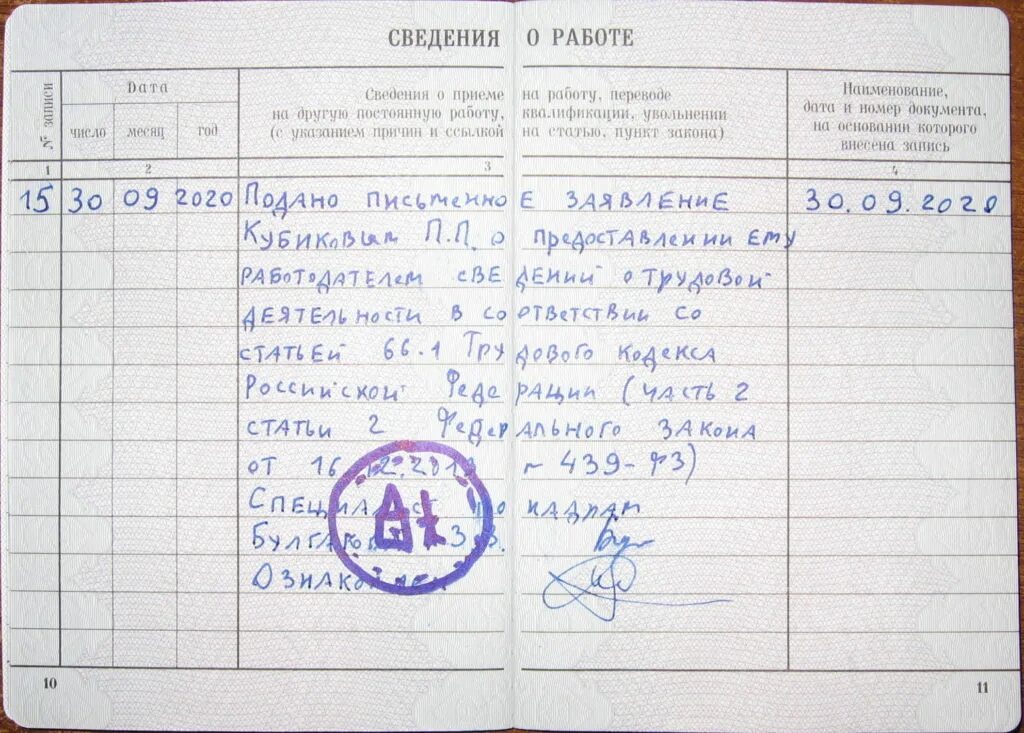 СВЕДЕНИЯ О РАБОТЕ
№ записи
Дата
число
месяц
год
Сведения о приеме на работу, переводе
на другую постоянную работу, квалификации, увольнении
(с указанием причин и ссылкой на статью, пункт закона)
Наименование,
дата и номер документа,
на основании которого
внесена запись
1 2 3 4
15 30 09 2020 Подано письменное заявление 30.09.2020
Кубиковым П.П. о предоставлении ему
работодателем сведений о трудовой
деятельности в соответствии со
статьей 66.1 Трудового кодекса
Российской Федерации (часть 2
статьи 2 Федерального закона
от 16.12.2019 № 439-ФЗ)
Специалист по кадрам
Булгакова З.В.
Ознакомлен
10
11